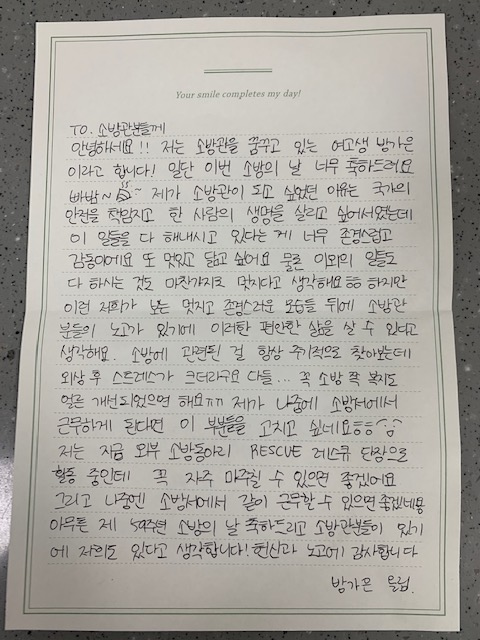 Your smile completes my day!
TO. 소방관분들께
안녕하세요!! 저는 소방관을 꿈꾸고 있는 여고생 방가은
이라고 합니다! 일단 이번 소방의 날 너무 축하드려요
빠밤~ 제가 소방관이 되고 싶었던 이유는 국가의
안전을 책임지고 한 사람의 생명을 살리고 싶어서였는데
이 일들을 다 해내시고 있다는 게 너무 존경스럽고
감동이에요 또 멋있고 닮고 싶어요 물론 이외의 일들도
다 하시는 것도 마찬가지로 멋지다고 생각해요ㅎㅎ 하지만
이런 저희가 보는 멋지고 존경스러운 모습들 뒤에 소방관
분들의 노고가 있기에 이러한 편안한 삶을 살 수 있다고
생각해요. 소방에 관련된 걸 항상 주기적으로 찾아보는데
외상 후 스트레스가 크더라구요 다들... 꼭 소방 쪽 복지도
얼른 개선되었으면 해요ㅠㅠ 제가 나중에 소방서에서
근무하게 된다면 이 부분들을 고치고 싶네요ㅎㅎ^^
저는 지금 외부 소방동아리 RESCUE 레스큐 단장으로
활동 중인데 꼭 자주 마주칠 수 있으면 좋겠어요
그리고 나중에 소방서에서 같이 근무할 수 있으면 좋겠네용
아무튼 제 59주년 소방의 날 축하드리고 소방관분들이 있기
에 저희도 있다고 생각합니다! 헌신과 노고에 감사합니다
방가은 올림.